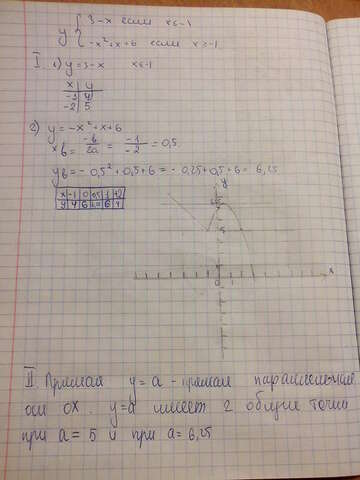 y { 3-x если x≤-1
-x²+x+6 если x>-1
I. 1) y=3-x x≤-1
x | y
-1 | 4
-2 | 5
2) y=-x²+x+6
xв = -b/2a = -1/-2 = 0,5
yв = -0,5²+0,5+6 = -0,25+0,5+6 = 6,25
x -1 0 0,5 1
y 4 6 6
y
5
0
x
II. Прямая y=a - прямая параллельная
оси OX. y=a имеет 2 общие точки
при a=5 и при a=6,25